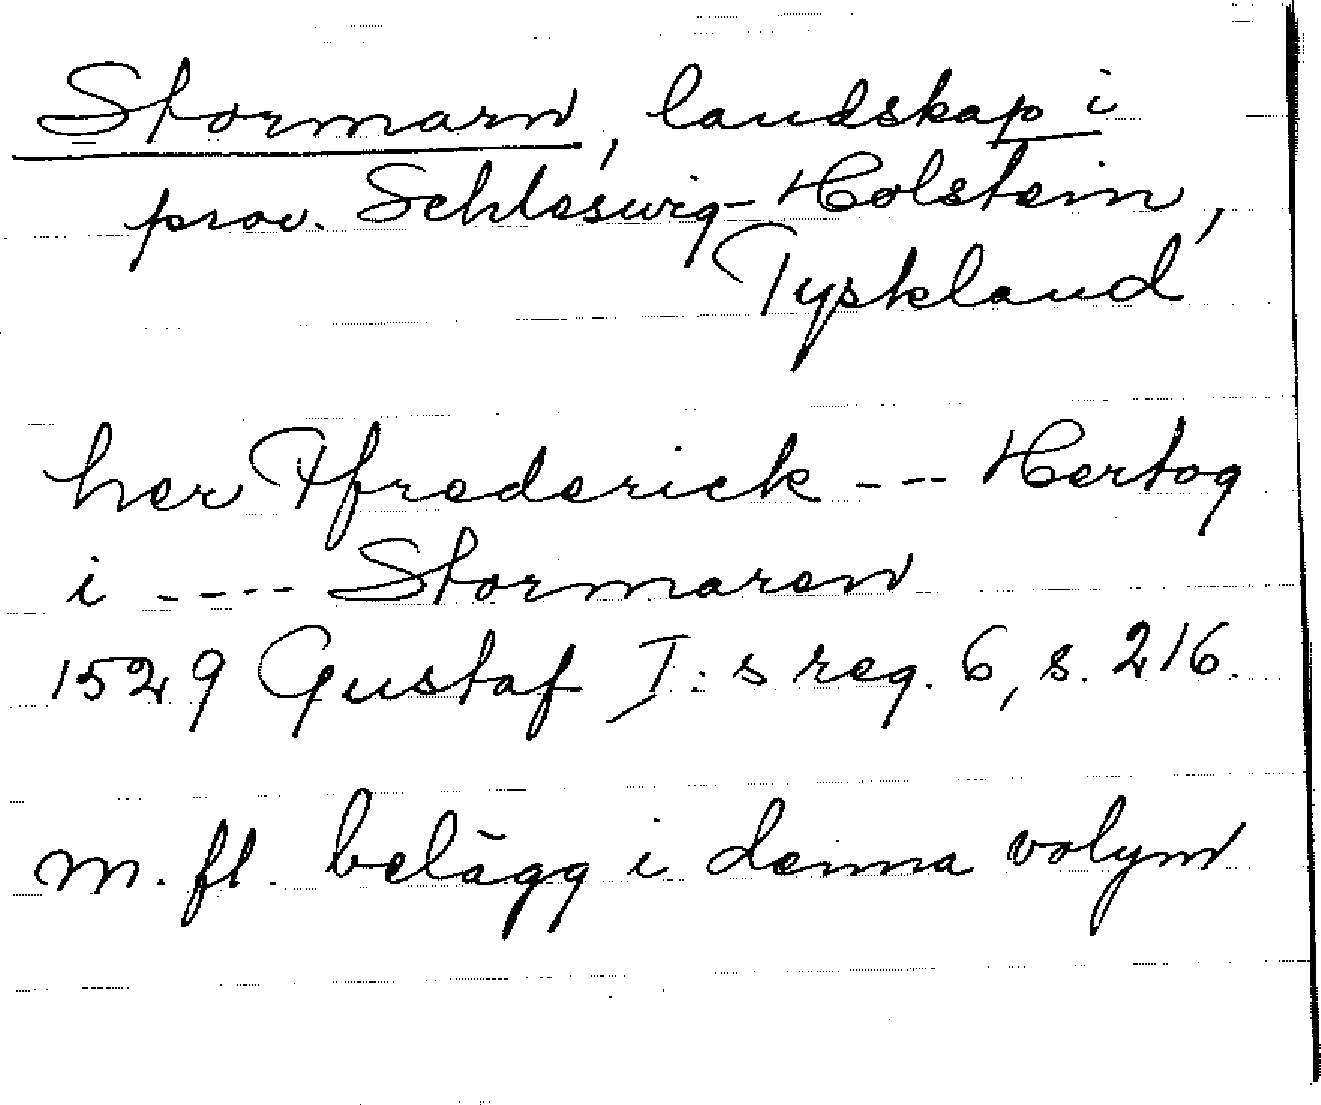 Stormarn, landskap i
prov. Schleswig-Holstein,
Tyskland
her Ffrederick --- Hertog
i ---- Stormaren
1529 Gustaf I:s reg. 6, s. 216.
m. fl. belägg i denna volym